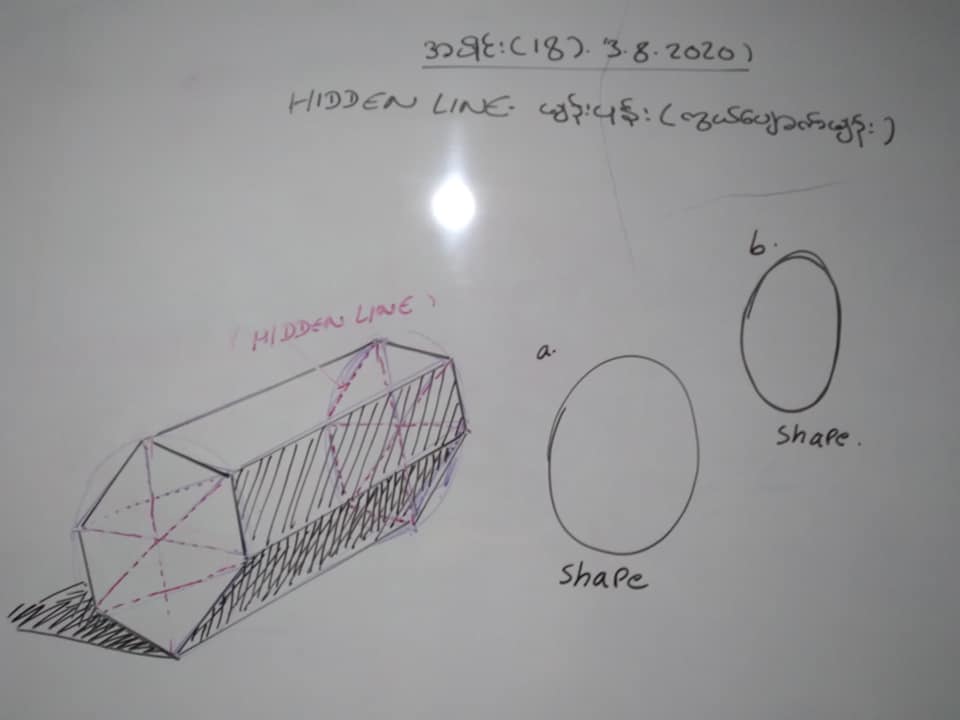 (18). 3.8.2020)
HIDDEN LINE. မျဉ်းပုန်း (ကွယ်ပျောက်မျဉ်း)
b.
(HIDDEN LINE)
a.
shape.
shape